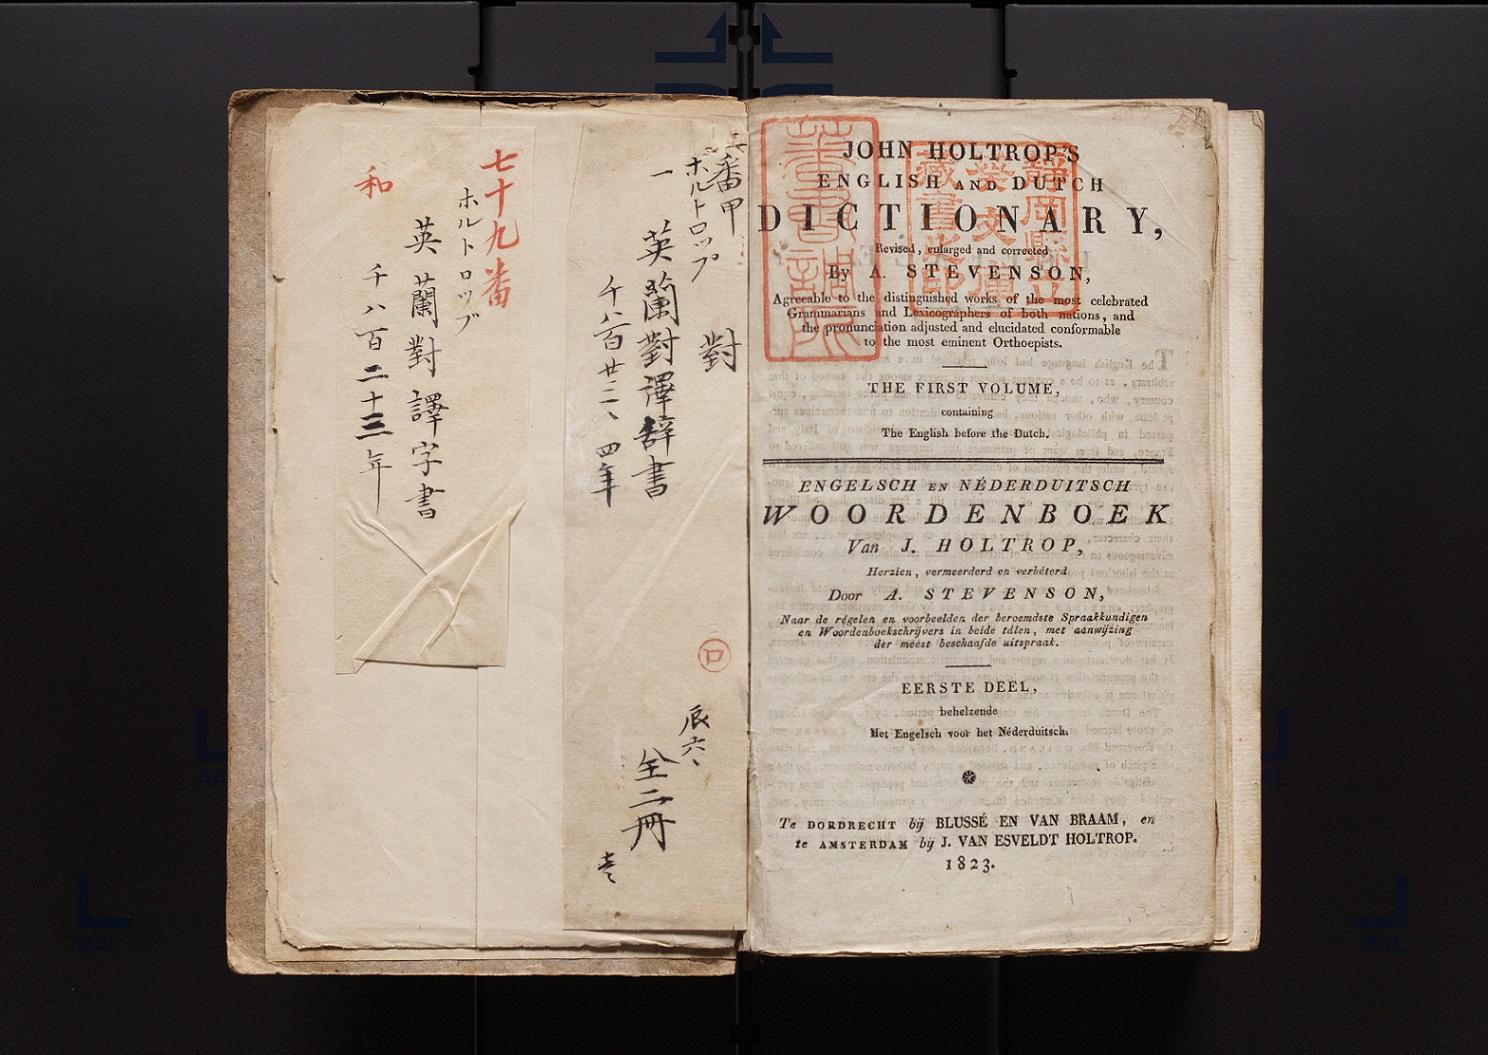 七十九番
和
ホルトロップ
英蘭對譯字書
千八百二十三年
番甲
ホルトロップ
一
對
英蘭對譯辞書
千八百廿三、四年
口
辰六
全二冊
JOHN HOLTROP'S
ENGLISH AND DUTCH
DICTIONARY,
Revised, enlarged and corrected
By A. STEVENSON,
Agreeable to the distinguished works of the most celebrated
Grammarians and Lexicographers of both nations, and
the pronunciation adjusted and elucidated conformable
to the most eminent Orthoepists.
THE FIRST VOLUME,
containing
The English before the Dutch.
ENGELSCH EN NÉDERDUITSCH
WOORDENBOEK
Van J. HOLTROP,
Herzien, vermeerderd en verbéterd
Door A. STEVENSON,
Naar de régelen en voorbeelden der beroemdste Spraakkundigen
en Woordenboekschrijvers in beide tálen, met aanwijzing
der meest beschaafde uitspraak.
EERSTE DEEL,
behelzende
Het Engelsch voor het Néderduitsch.
Te DORDRECHT bij BLUSSÉ EN VAN BRAAM, en
te AMSTERDAM bij J. VAN ESVELDT HOLTROP.
1823.
靜岡縣立
葵文庫
藏書之印
B4L
B4L